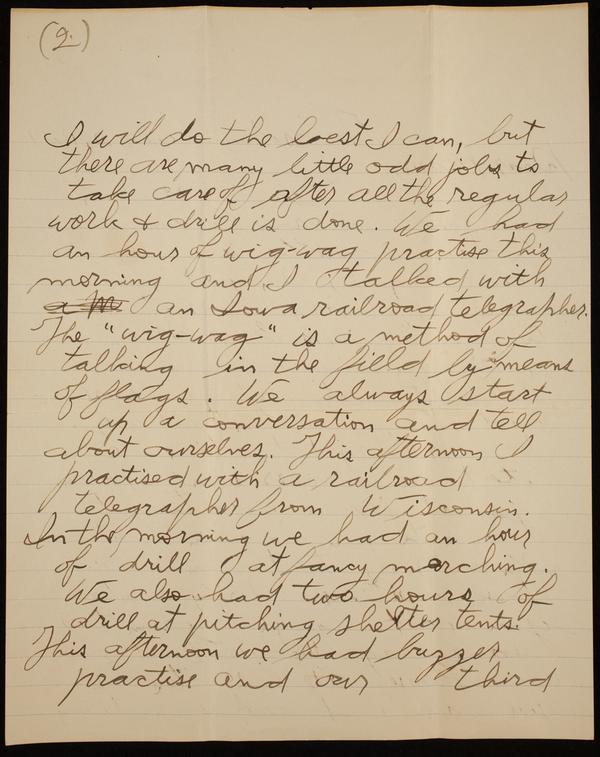 (2.)
I will do the best I can, but
there are many little odd jobs to
take care of, after all the regular
work & drill is done. We had
an hour of wig-wag practise this
morning and I talked with
an Iowa railroad telegrapher.
The "wig-wag" is a method of
talking in the field by means
of flags. We always start
up a conversation and tell
about ourselves. This afternoon I
practised with a railroad
telegrapher from Wisconsin.
In the morning we had an hour
of drill at fancy marching.
We also had two hours of
drill at pitching shelter tents.
This afternoon we had buzzer
practise and our third